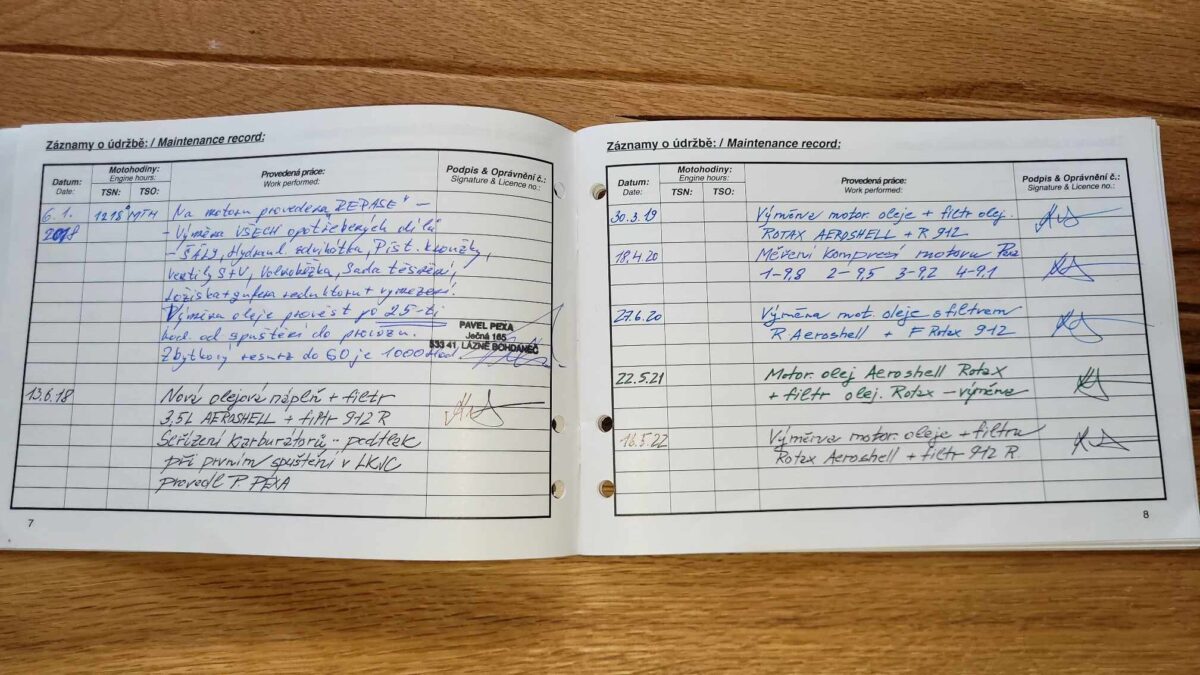 Záznamy o údržbě: / Maintenance record:
Datum:
Date:
Motohodiny:
Engine hours:
TSN:
TSO:
Provedená práce:
Work performed:
Podpis & Oprávnění č.:
Signature & Licence no.:
6.1.
2018
1218 MTH
Na motoru provedena "REPASE" –
– Výměna VŠECH opotřebených dílů
– SADY, Hydraul. zdvihátka, Píst. kroužky,
ventily S+V, Volnoběžka, Sada těsnění,
Ložiska + gufera reduktoru + vymezení.
Výměnu oleje provést po 25-ti
hod. od spuštění do provozu.
Zbytkový resurz do GO je 1000 hod.
PAVEL PEXA
Ječná 165
533 41, LÁZNĚ BOHDANEČ
13.6.18
Nová olejová náplň + filtr
3,5L AEROSHELL + filtr 912 R
Seřízení karburátorů –
při prvním spuštění v LKJC
provedl P. PEXA
7
Záznamy o údržbě: / Maintenance record:
Datum:
Date:
Motohodiny:
Engine hours:
TSN:
TSO:
Provedená práce:
Work performed:
Podpis & Oprávnění č.:
Signature & Licence no.:
30.3.19
Výměna motor. oleje + filtr olej.
ROTAX AEROSHELL + R 912
18.4.20
Měření kompresí motoru
1–9,8 2–9,5 3–9,2 4–9,1
27.6.20
Výměna mot. oleje s filtrem
R. Aeroshell + F Rotax 912
22.5.21
Motor. olej Aeroshell Rotax
+ filtr olej. Rotax – výměna
16.5.22
Výměna motor. oleje + filtru
Rotax Aeroshell + filtr 912 R
8